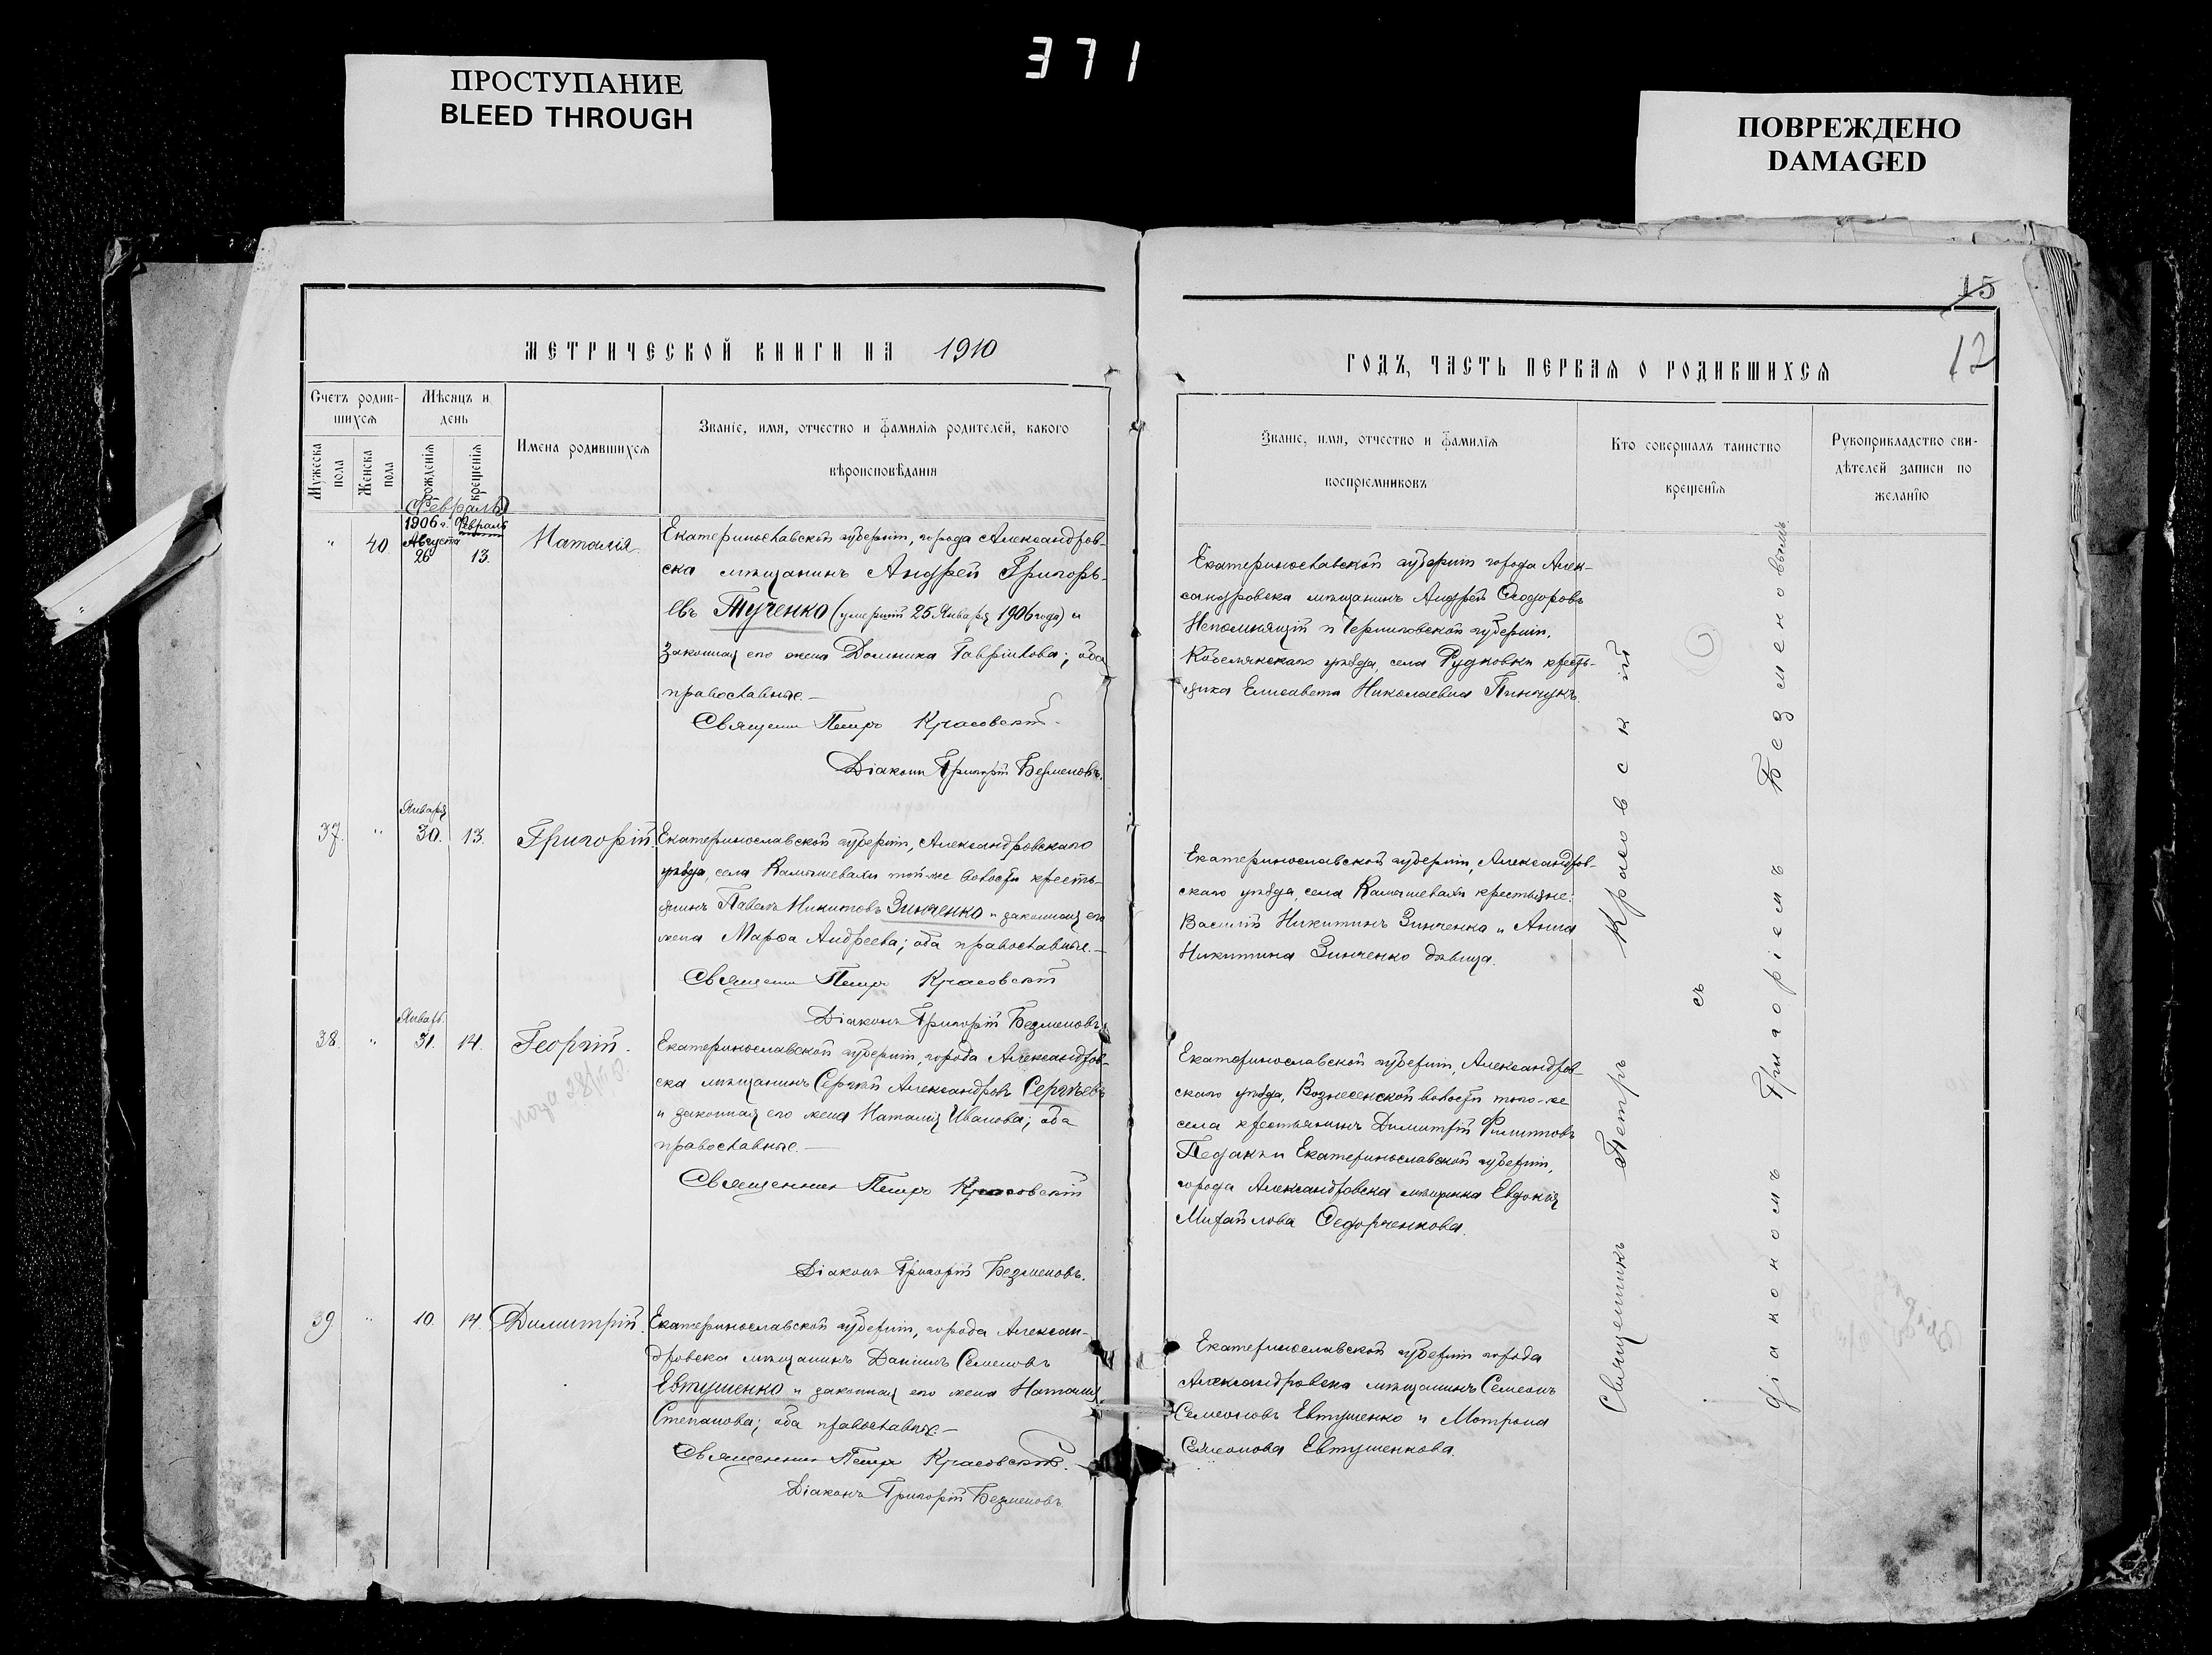 371
ПРОСТУПАНИЕ
BLEED THROUGH
ПОВРЕЖДЕНО
DAMAGED
МЕТРИЧЕСКОЙ КНИГИ НА 1910
Счетъ родив-
шихся
Мужеска
пола
Женска
пола
Мѣсяцъ и
день
рожденія
крещенія
Имена родившихся
Званіе, имя, отчество и фамилія родителей, какого
вѣроисповѣданія
Февраль
" 40
1906 г. Августа 26
Февраль 13.
Наталія.
Екатеринославской губерніи, города Александров-
ска мѣщанинъ Андрей Григорь-
евъ Тученко (умершій 25 Января 1906 года) и
законная его жена Домника Гаврилова; оба
православные.—
Священн Петръ Красовскій.
Діаконъ Григорій Безменовъ.
37. " Января 30. 13. Григорій.
Екатеринославской губерніи, Александровскаго
уѣзда, села Камышевахи той-же волости кресть-
янинъ Павелъ Никитовъ Зинченко и законная его
жена Марѳа Андреева; оба православные.—
Священн Петръ Красовскій
Діаконъ Григорій Безменовъ.
38. " Январь. 31. 14. Георгій.
Екатеринославской губерніи, города Александров-
ска мѣщанинъ Сергѣй Александровъ Сергѣевъ
и законная его жена Наталія Иванова; оба
православные.—
Священник Петръ Красовскій
Діаконъ Григорій Безменовъ.
39 " 10. 14. Димитрій.
Екатеринославской губерніи, города Алексан-
дровска мѣщанинъ Даніилъ Семеновъ
Евтушенко и законная его жена Наталія
Степанова; оба православные.—
Священник Петръ Красовскій.
Діаконъ Григорій Безменовъ.
15
12
ГОДЪ, ЧАСТЬ ПЕРВАЯ О РОДИВШИХСЯ
Званіе, имя, отчество и фамилія
воспріемниковъ
Кто совершалъ таинство
крещенія
Рукоприкладство сви-
дѣтелей записи по
желанію
Екатеринославской губерніи города Алек-
сандровска мѣщанинъ Андрей Ѳеодоровъ
Непомнящій и Черниговской губерніи,
уѣзда, села Рудковки кресть-
янка Елисавета Николаевна Пинчукъ.
Екатеринославской губерніи, Александров-
скаго уѣзда, села Камышевахи крестьяне:
Василій Никитинъ Зинченко и Анна
Никитина Зинченко дѣвица.
Екатеринославской губерніи, Александров-
скаго уѣзда, Вознесенской волости того-же
села крестьянинъ Димитрій Филипповъ
Педакъ и Екатеринославской губерніи,
города Александровска мѣщанка Евдокія
Михайлова Ѳедорченкова.
Екатеринославской губерніи города
Александровска мѣщанинъ Семеонъ
Семеоновъ Евтушенко и Матрона
Семеонова Евтушенкова.
Священникъ Петръ Красовскій
съ
діакономъ Григоріемъ Безменовымъ.